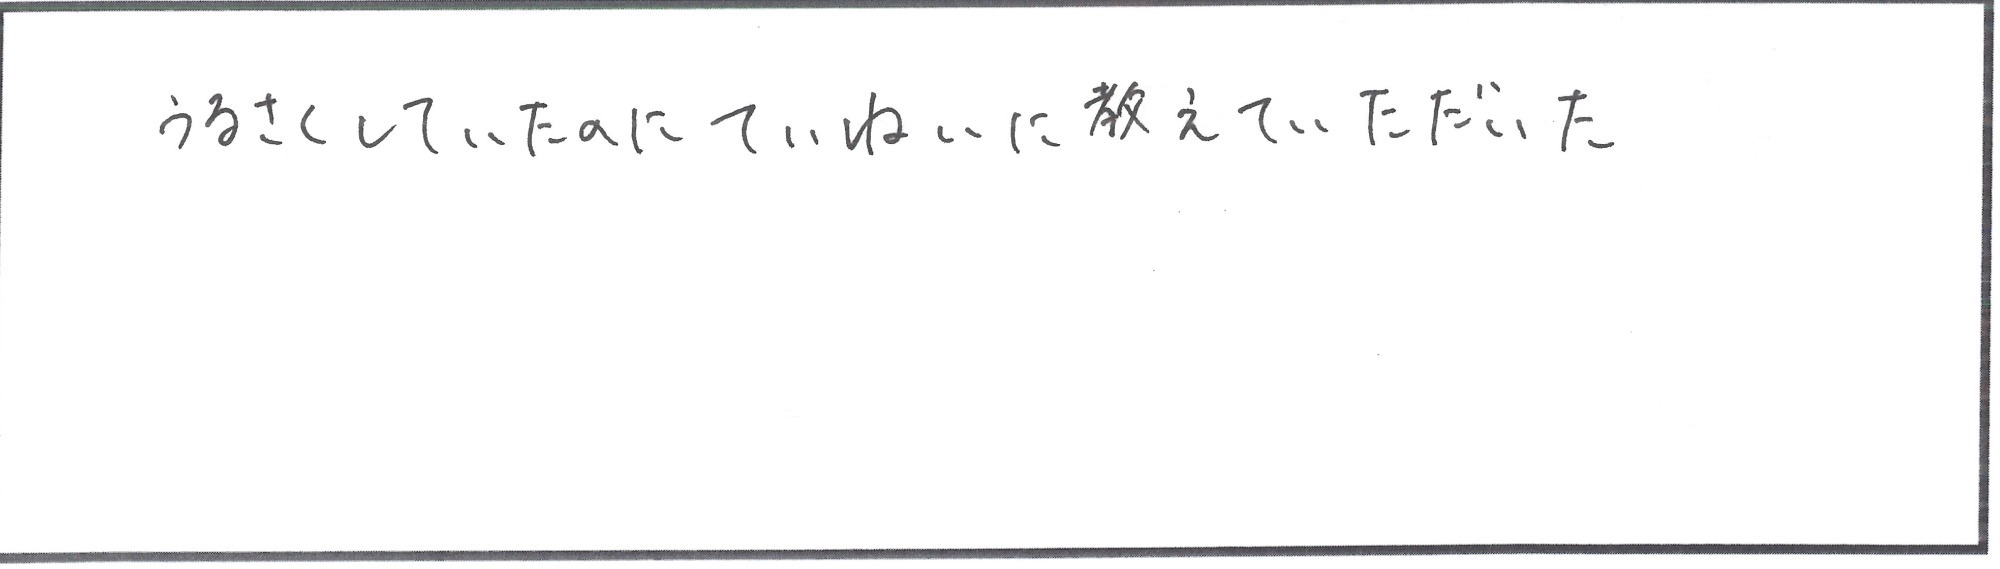 うるさくしていたのにていねいに教えていただいた